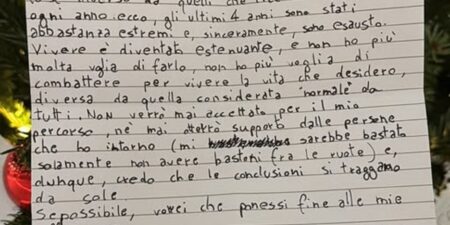 ogni anno. ecco, gli ultimi 4 anni sono stati
abbastanza estremi e, sinceramente, sono esausto.
Vivere è diventato estenuante, e non ho più
molta voglia di farlo, non ho più voglia di
combattere per vivere la vita che desidero,
diversa da quella considerata "normale" da
tutti. Non verrò mai accettato per il mio
percorso, nè mai otterrò supporto dalle persone
che ho intorno (mi sarebbe bastato
solamente non avere bastoni fra le ruote) e,
dunque, credo che le conclusioni si traggano
da sole.
Se possibile, vorrei che ponessi fine alle mie